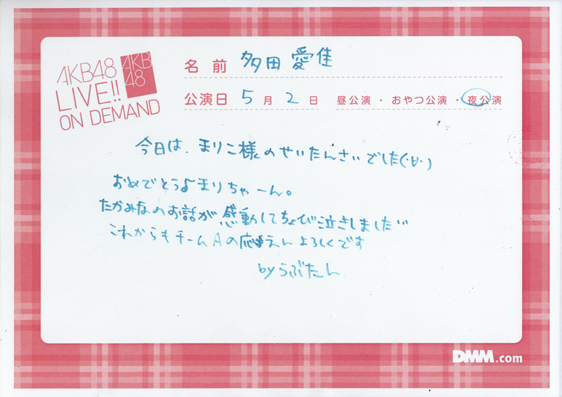 AKB48
LIVE!!
ON DEMAND
AKB
48
名前 多田愛佳
公演日 5月2日 昼公演・おやつ公演・夜公演
今日は、まりこ様のせいたんさいでした(・∀・)
おめでとう♪まりちゃーん。
たかみなのお話が感動してちょび泣きしました…
これからもチームAの応えんよろしくです
byらぶたん
DMM.com